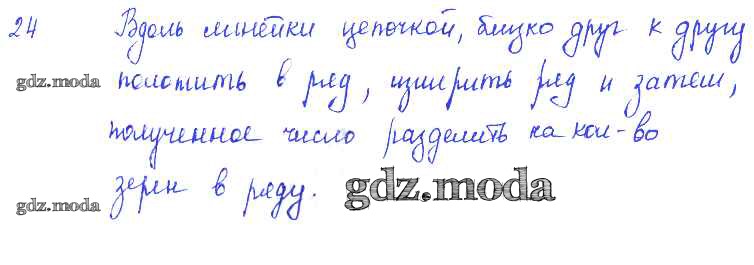 24 Вдоль линейки цепочкой, близко друг к другу
gdz.moda положить в ряд, измерить ряд и затем,
полученное число разделить на кол-во
зерен в ряду. gdz.moda
gdz.moda